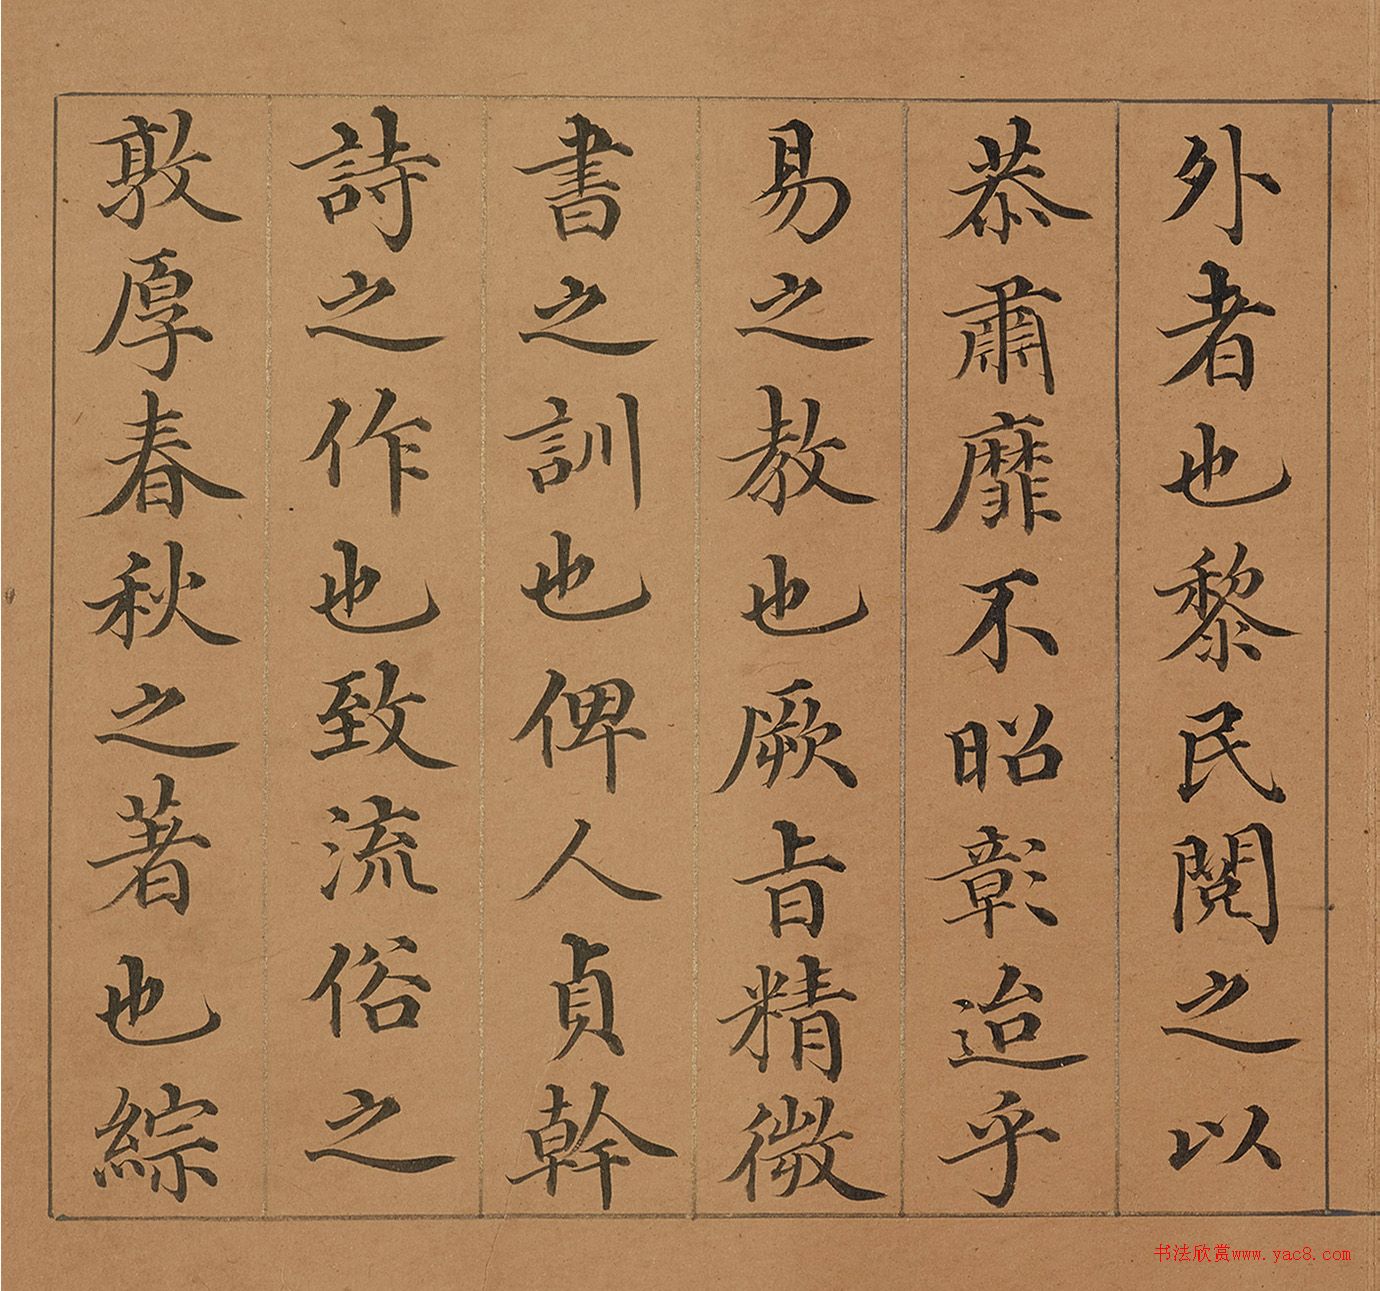 外者也黎民閱之以
恭肅靡不昭彰迨乎
易之教也厥旨精微
書之訓也俾人貞幹
詩之作也致流俗之
敦厚春秋之著也綜
书法欣赏www.yac8.com